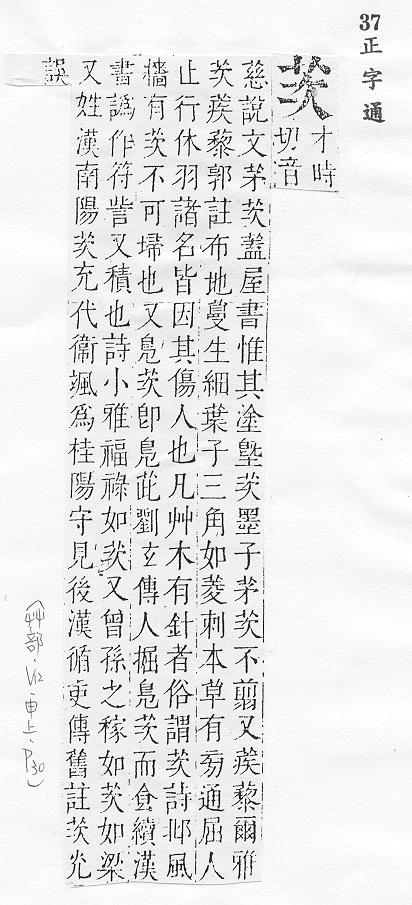 37正字通
茨
才時
切音
慈說文茅茨蓋屋書惟其塗塈茨墨子茅茨不翦又蒺黎爾雅
茨蒺黎郭註布地蔓生細葉子三角如菱刺本草有㫄通屈人
止行休羽諸名皆因其傷人也凡艸木有針者俗謂茨詩邶風
牆有茨不可埽也又鳧茨卽鳧茈劉玄傳人掘鳧茨而食續漢
書譌作符訾又積也詩小雅福祿如茨又曾孫之稼如茨如梁
又姓漢南陽茨充代衞颯爲桂陽守見後漢循吏傳舊註茨充
誤
(艸部.V12.申上.P30)